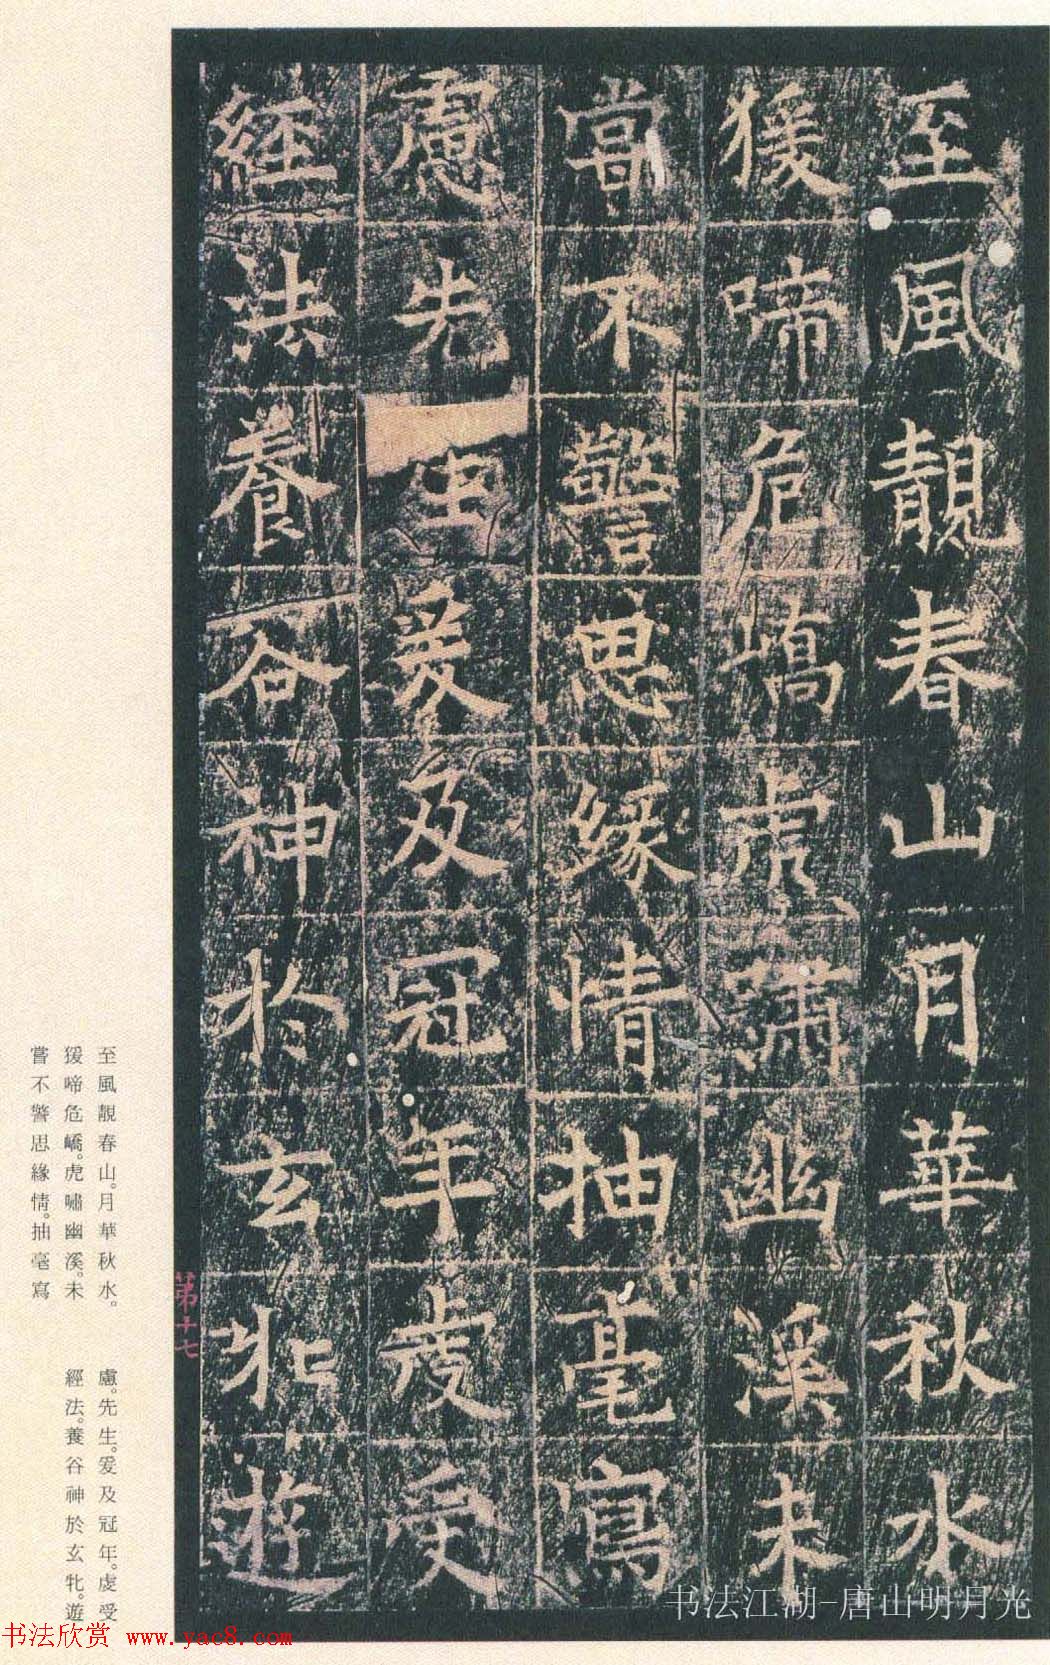 至風靚春山月華秋水
猨啼危嶠虎嘯幽溪未
嘗不警思緣情抽毫寫
慮先生爰及冠年虔受
經法養谷神於玄牝遊
至風靚春山。月華秋水。
猨啼危嶠。虎嘯幽溪。未
嘗不警思緣情。抽毫寫
慮。先生。爰及冠年。虔受
經法。養谷神於玄牝。遊
第十七
书法江湖-唐山明月光
书法欣赏 www.yac8.com